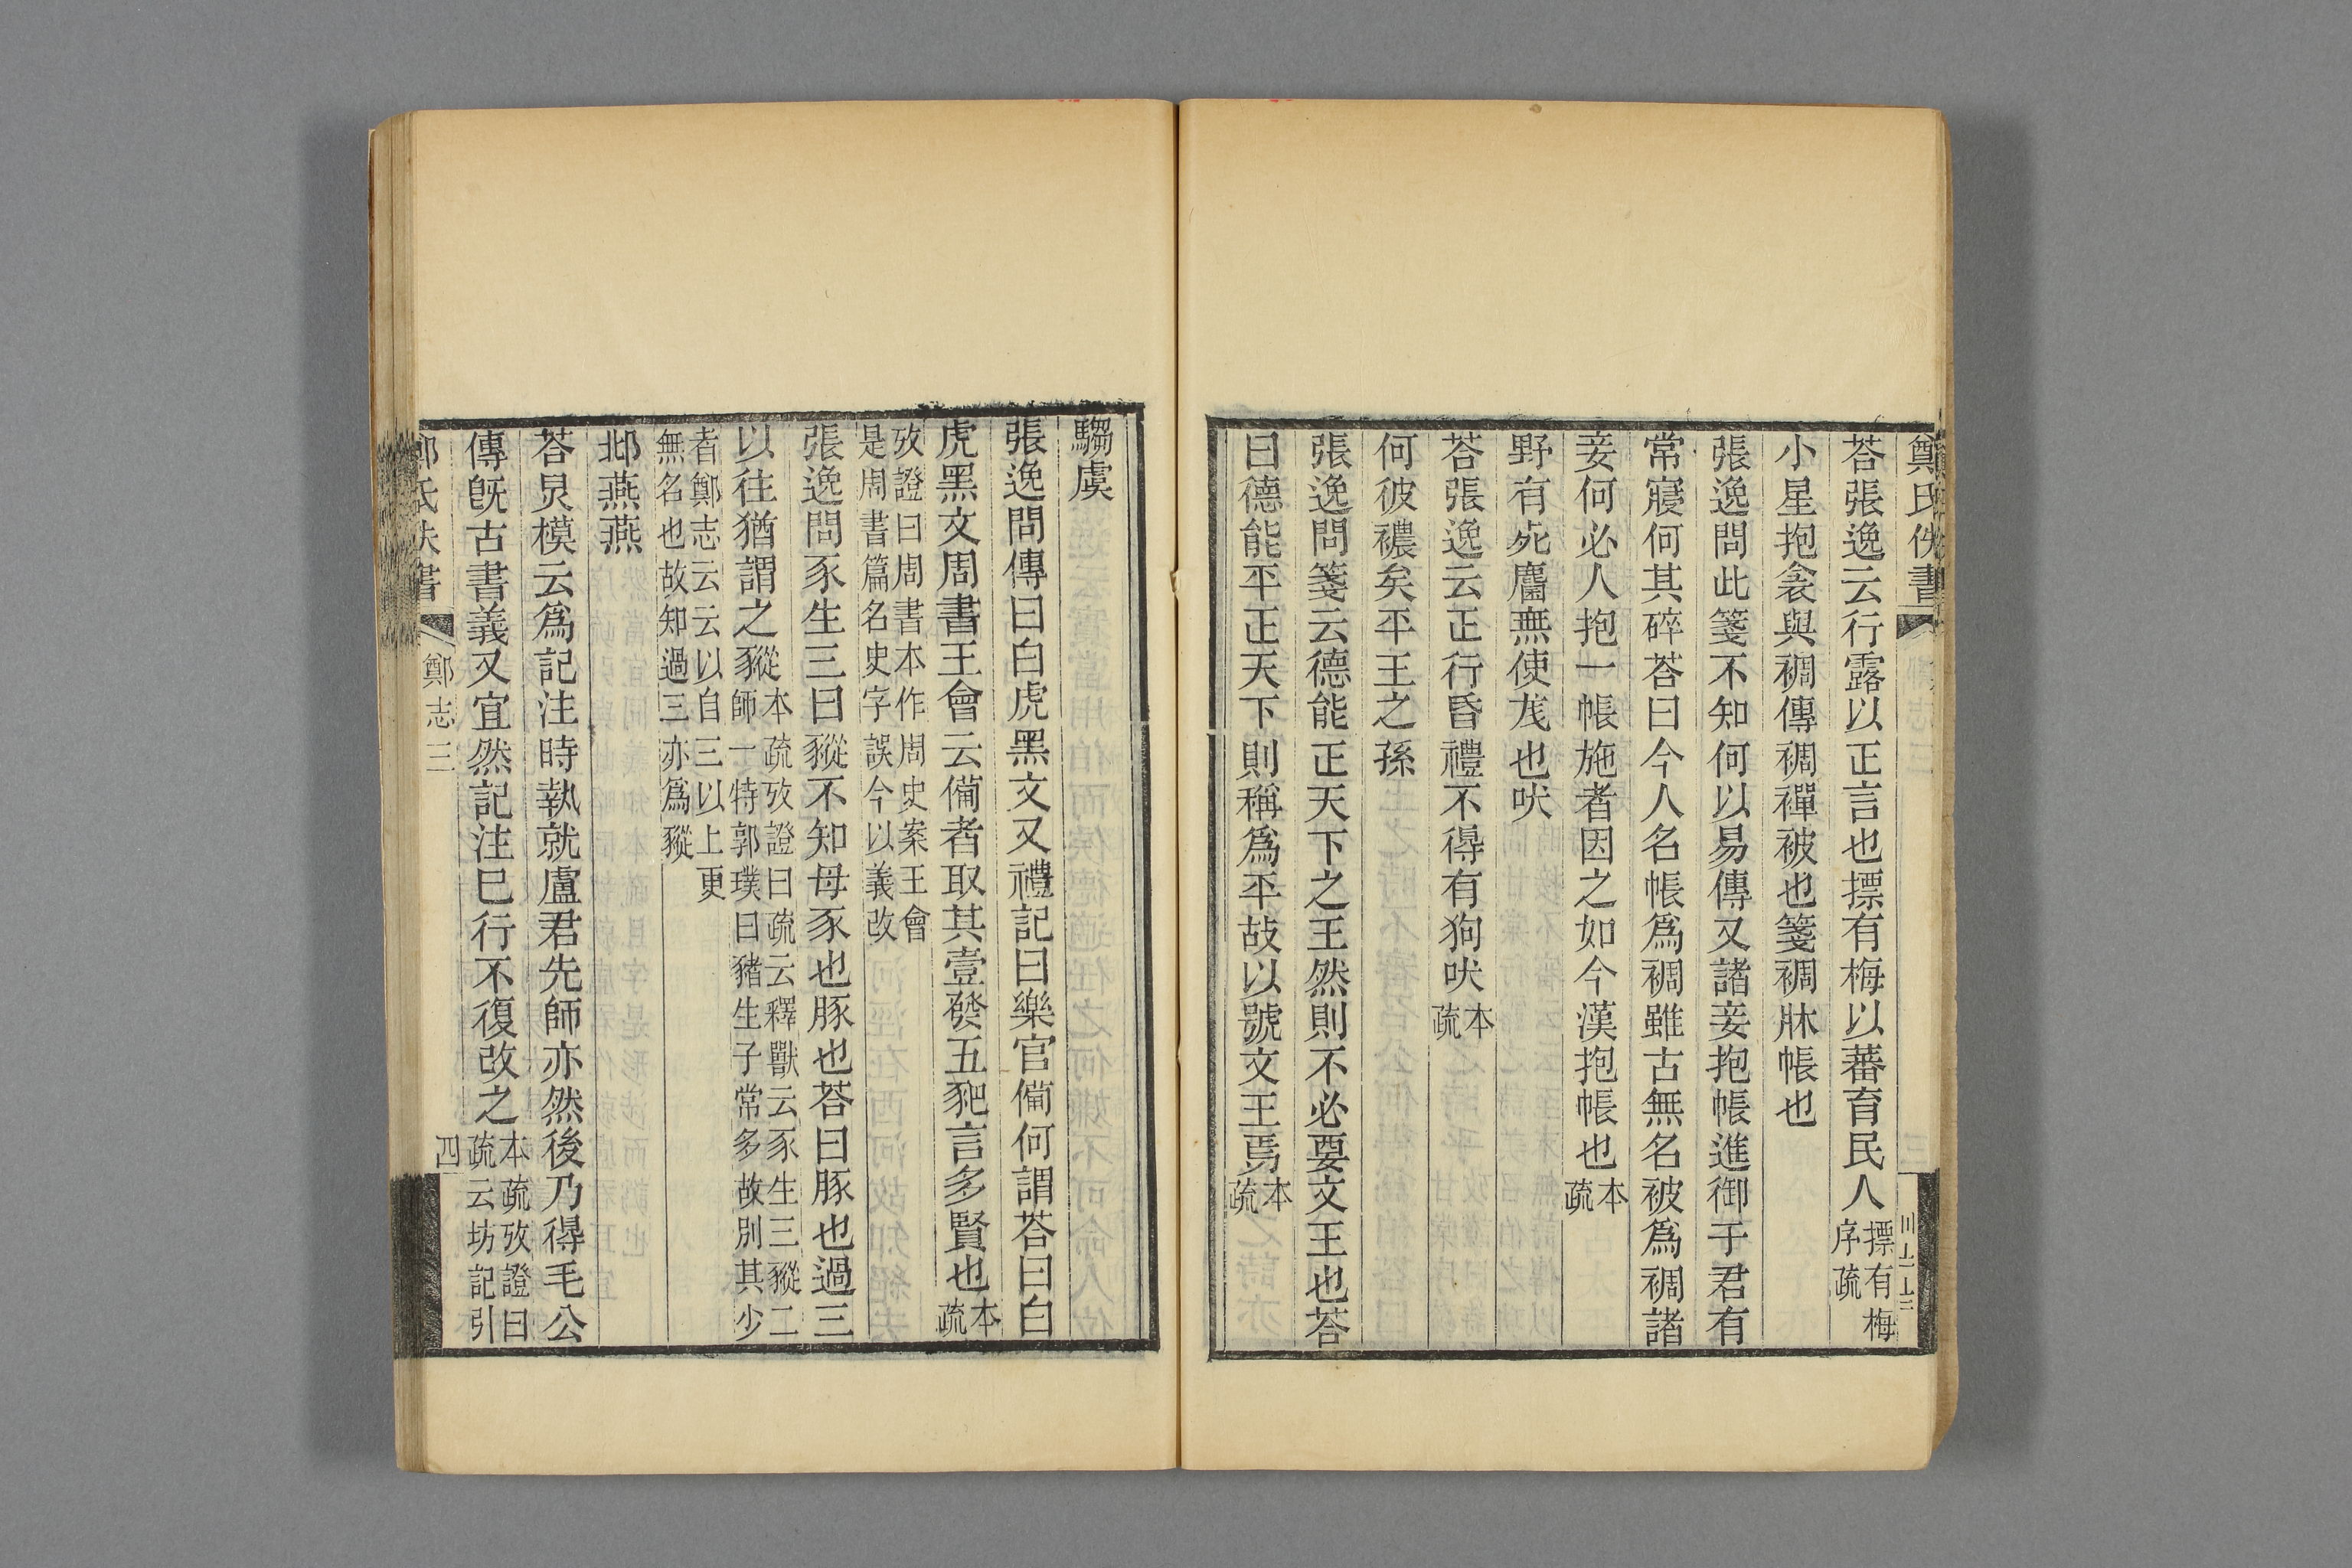 鄭氏佚書
荅張逸云行露以正言也摽有梅以蕃育民人摽有梅序疏
小星抱衾與裯傳裯襌被也箋裯牀帳也
張逸問此箋不知何以易傳又諸妾抱帳進御于君有
常寢何其碎荅曰今人名帳爲裯雖古無名被爲裯諸
妾何必人抱一帳施者因之如今漢抱帳也本疏
野有死麕無使尨也吠
荅張逸云正行昏禮不得有狗吠本疏
何彼襛矣平王之孫
張逸問箋云德能正天下之王然則不必要文王也荅
曰德能平正天下則稱爲平故以號文王焉本疏
騶虞
張逸問傳曰白虎黑文又禮記曰樂官備何謂荅曰白
虎黑文周書王會云備者取其壹發五豝言多賢也本疏
攷證曰周書本作周史案王會
是周書篇名史字誤今以義改
張逸問豕生三曰豵不知母豕也豚也荅曰豚也過三
以往猶謂之豵本疏攷證曰疏云釋獸云豕生三豵二
師一特郭璞曰豬生子常多故別其少
者鄭志云云以自三以上更
無名也故知過三亦爲豵
邶燕燕
荅炅模云爲記注時執就盧君先師亦然後乃得毛公
傳旣古書義又宜然記注已行不復改之本疏攷證曰
疏云坊記引
鄭志三
四